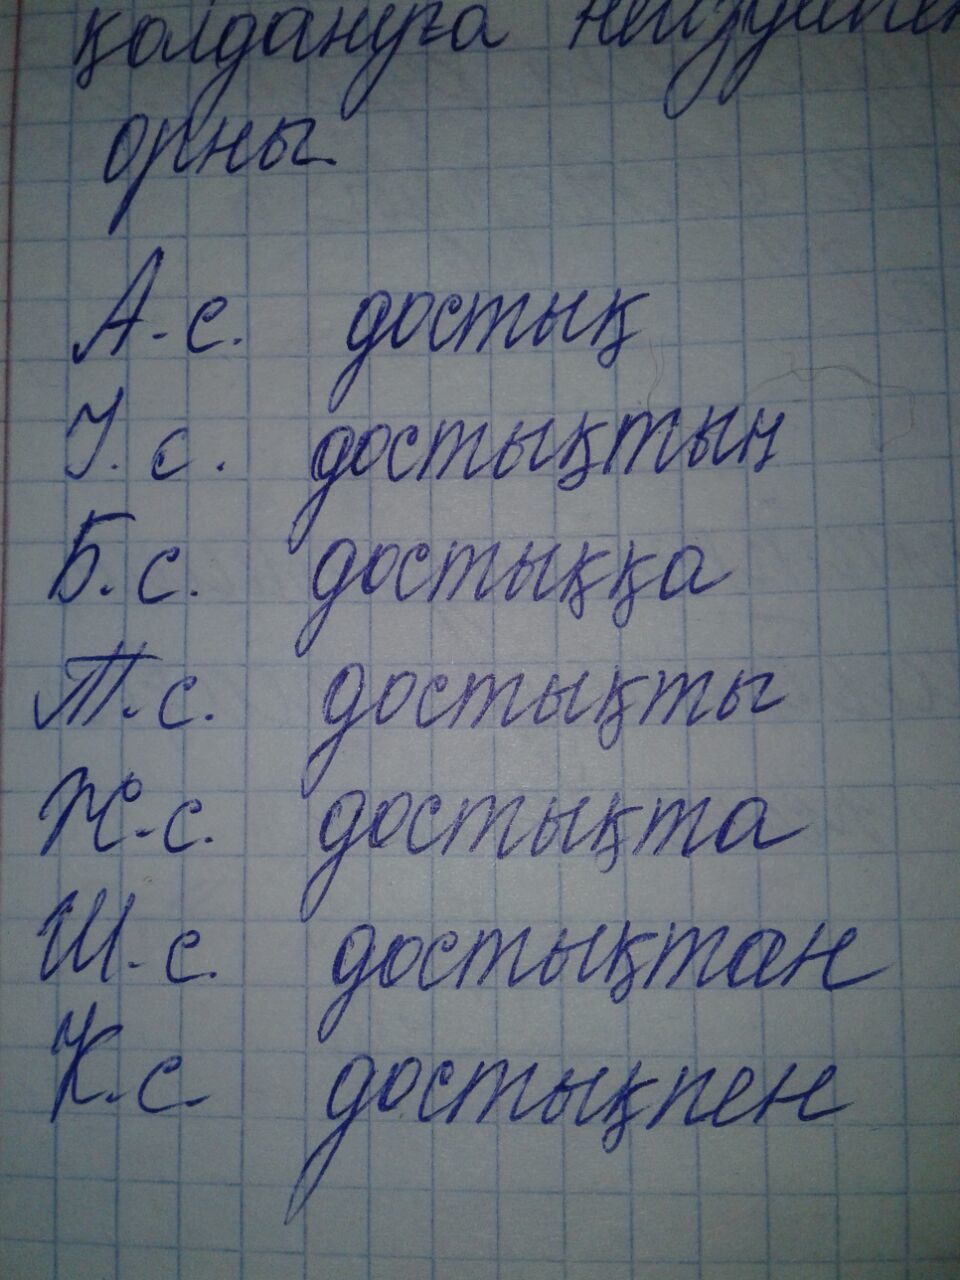 қолдануға
орны.
А.с. достық
І.с. достықтың
Б.с. достыққа
Т.с. достықты
Ж.с. достықта
Ш.с. достықтан
К.с. достықпен